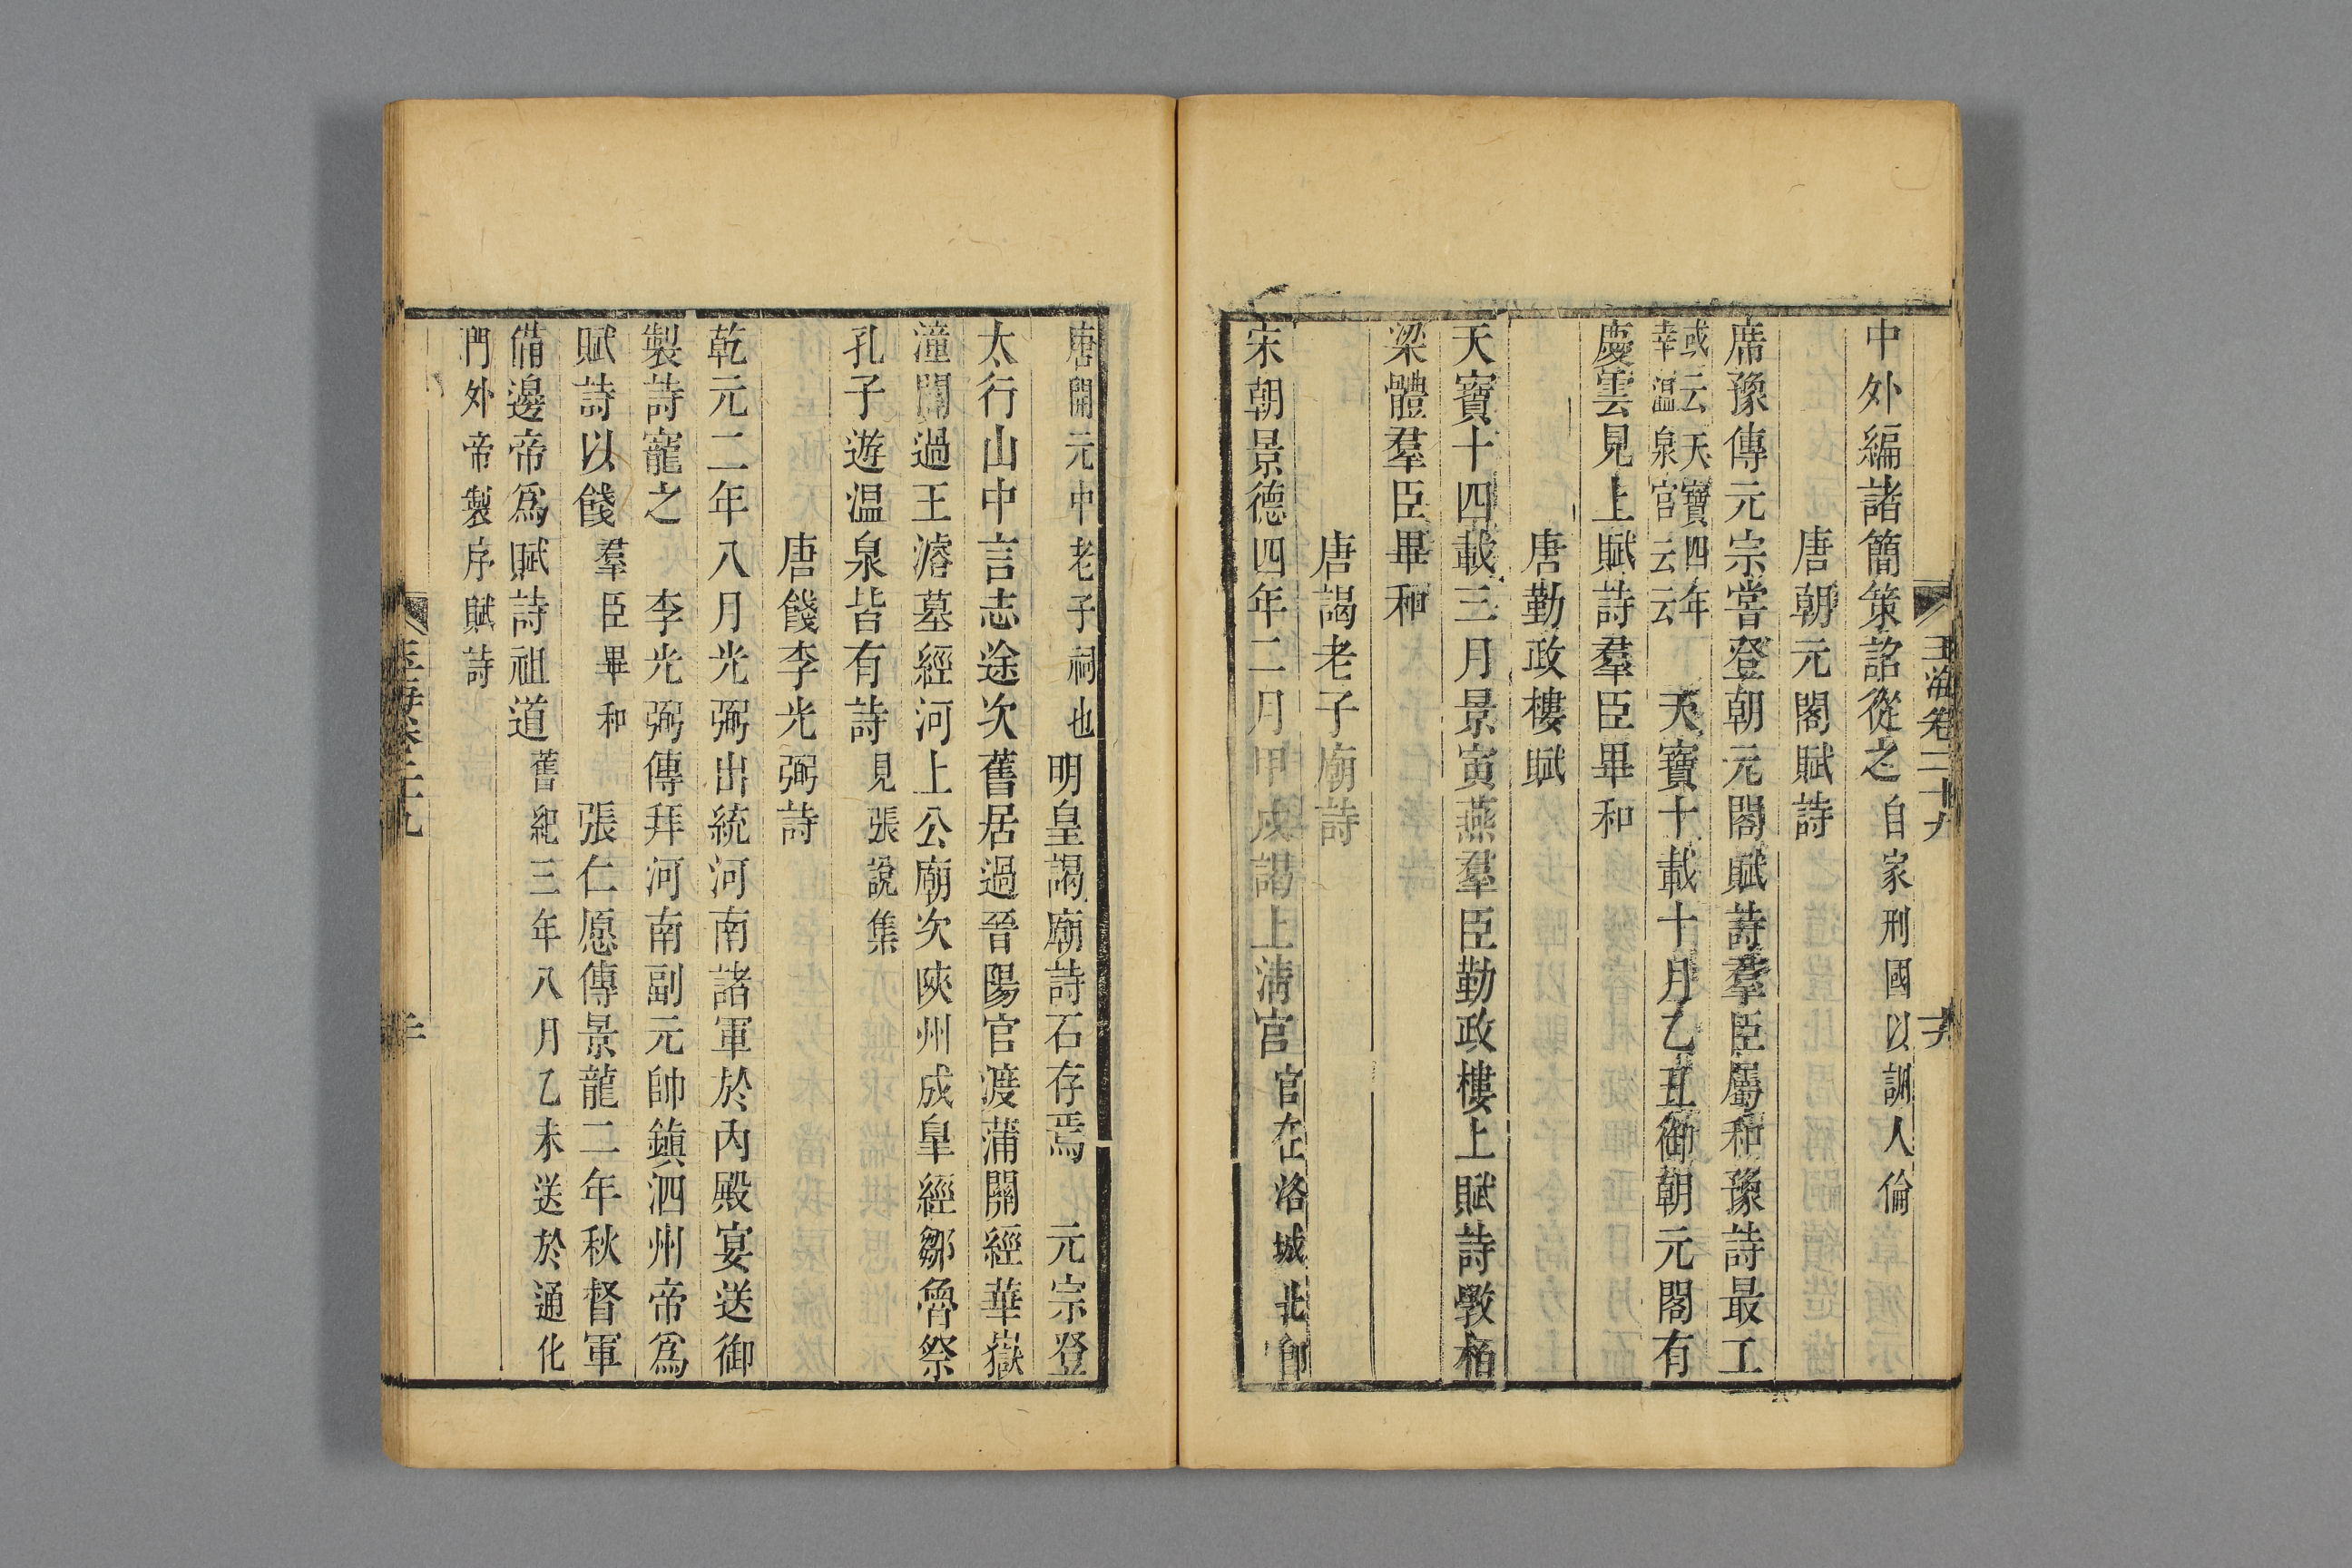 玉海卷二十九
中外編諸簡策詔從之自家刑國以訓人倫
唐朝元閣賦詩
席豫傳元宗嘗登朝元閣賦詩羣臣屬和豫詩最工
或云天寶四年幸溫泉宮云云天寶十載十月乙丑御朝元閣有
慶雲見上賦詩羣臣畢和
唐勤政樓賦
天寶十四載三月景寅燕羣臣勤政樓上賦詩斆栢
梁體羣臣畢和
唐謁老子廟詩
宋朝景德四年二月甲戍謁上淸宮宮在洛城北卽
唐開元中老子祠也明皇謁廟詩石存焉 元宗登
太行山中言志途次舊居過晉陽宮渡蒲關經華嶽
潼關過王濬墓經河上公廟次陝州成臯經鄒魯祭
孔子遊溫泉皆有詩見張說集
唐餞李光弼詩
乾元二年八月光弼出統河南諸軍於內殿宴送御
製詩寵之 李光弼傳拜河南副元帥鎭泗州帝爲
賦詩以餞羣臣畢和 張仁愿傳景龍二年秋督軍
備邊帝爲賦詩祖道舊紀三年八月乙未送於通化
門外帝製序賦詩
玉海卷二十九